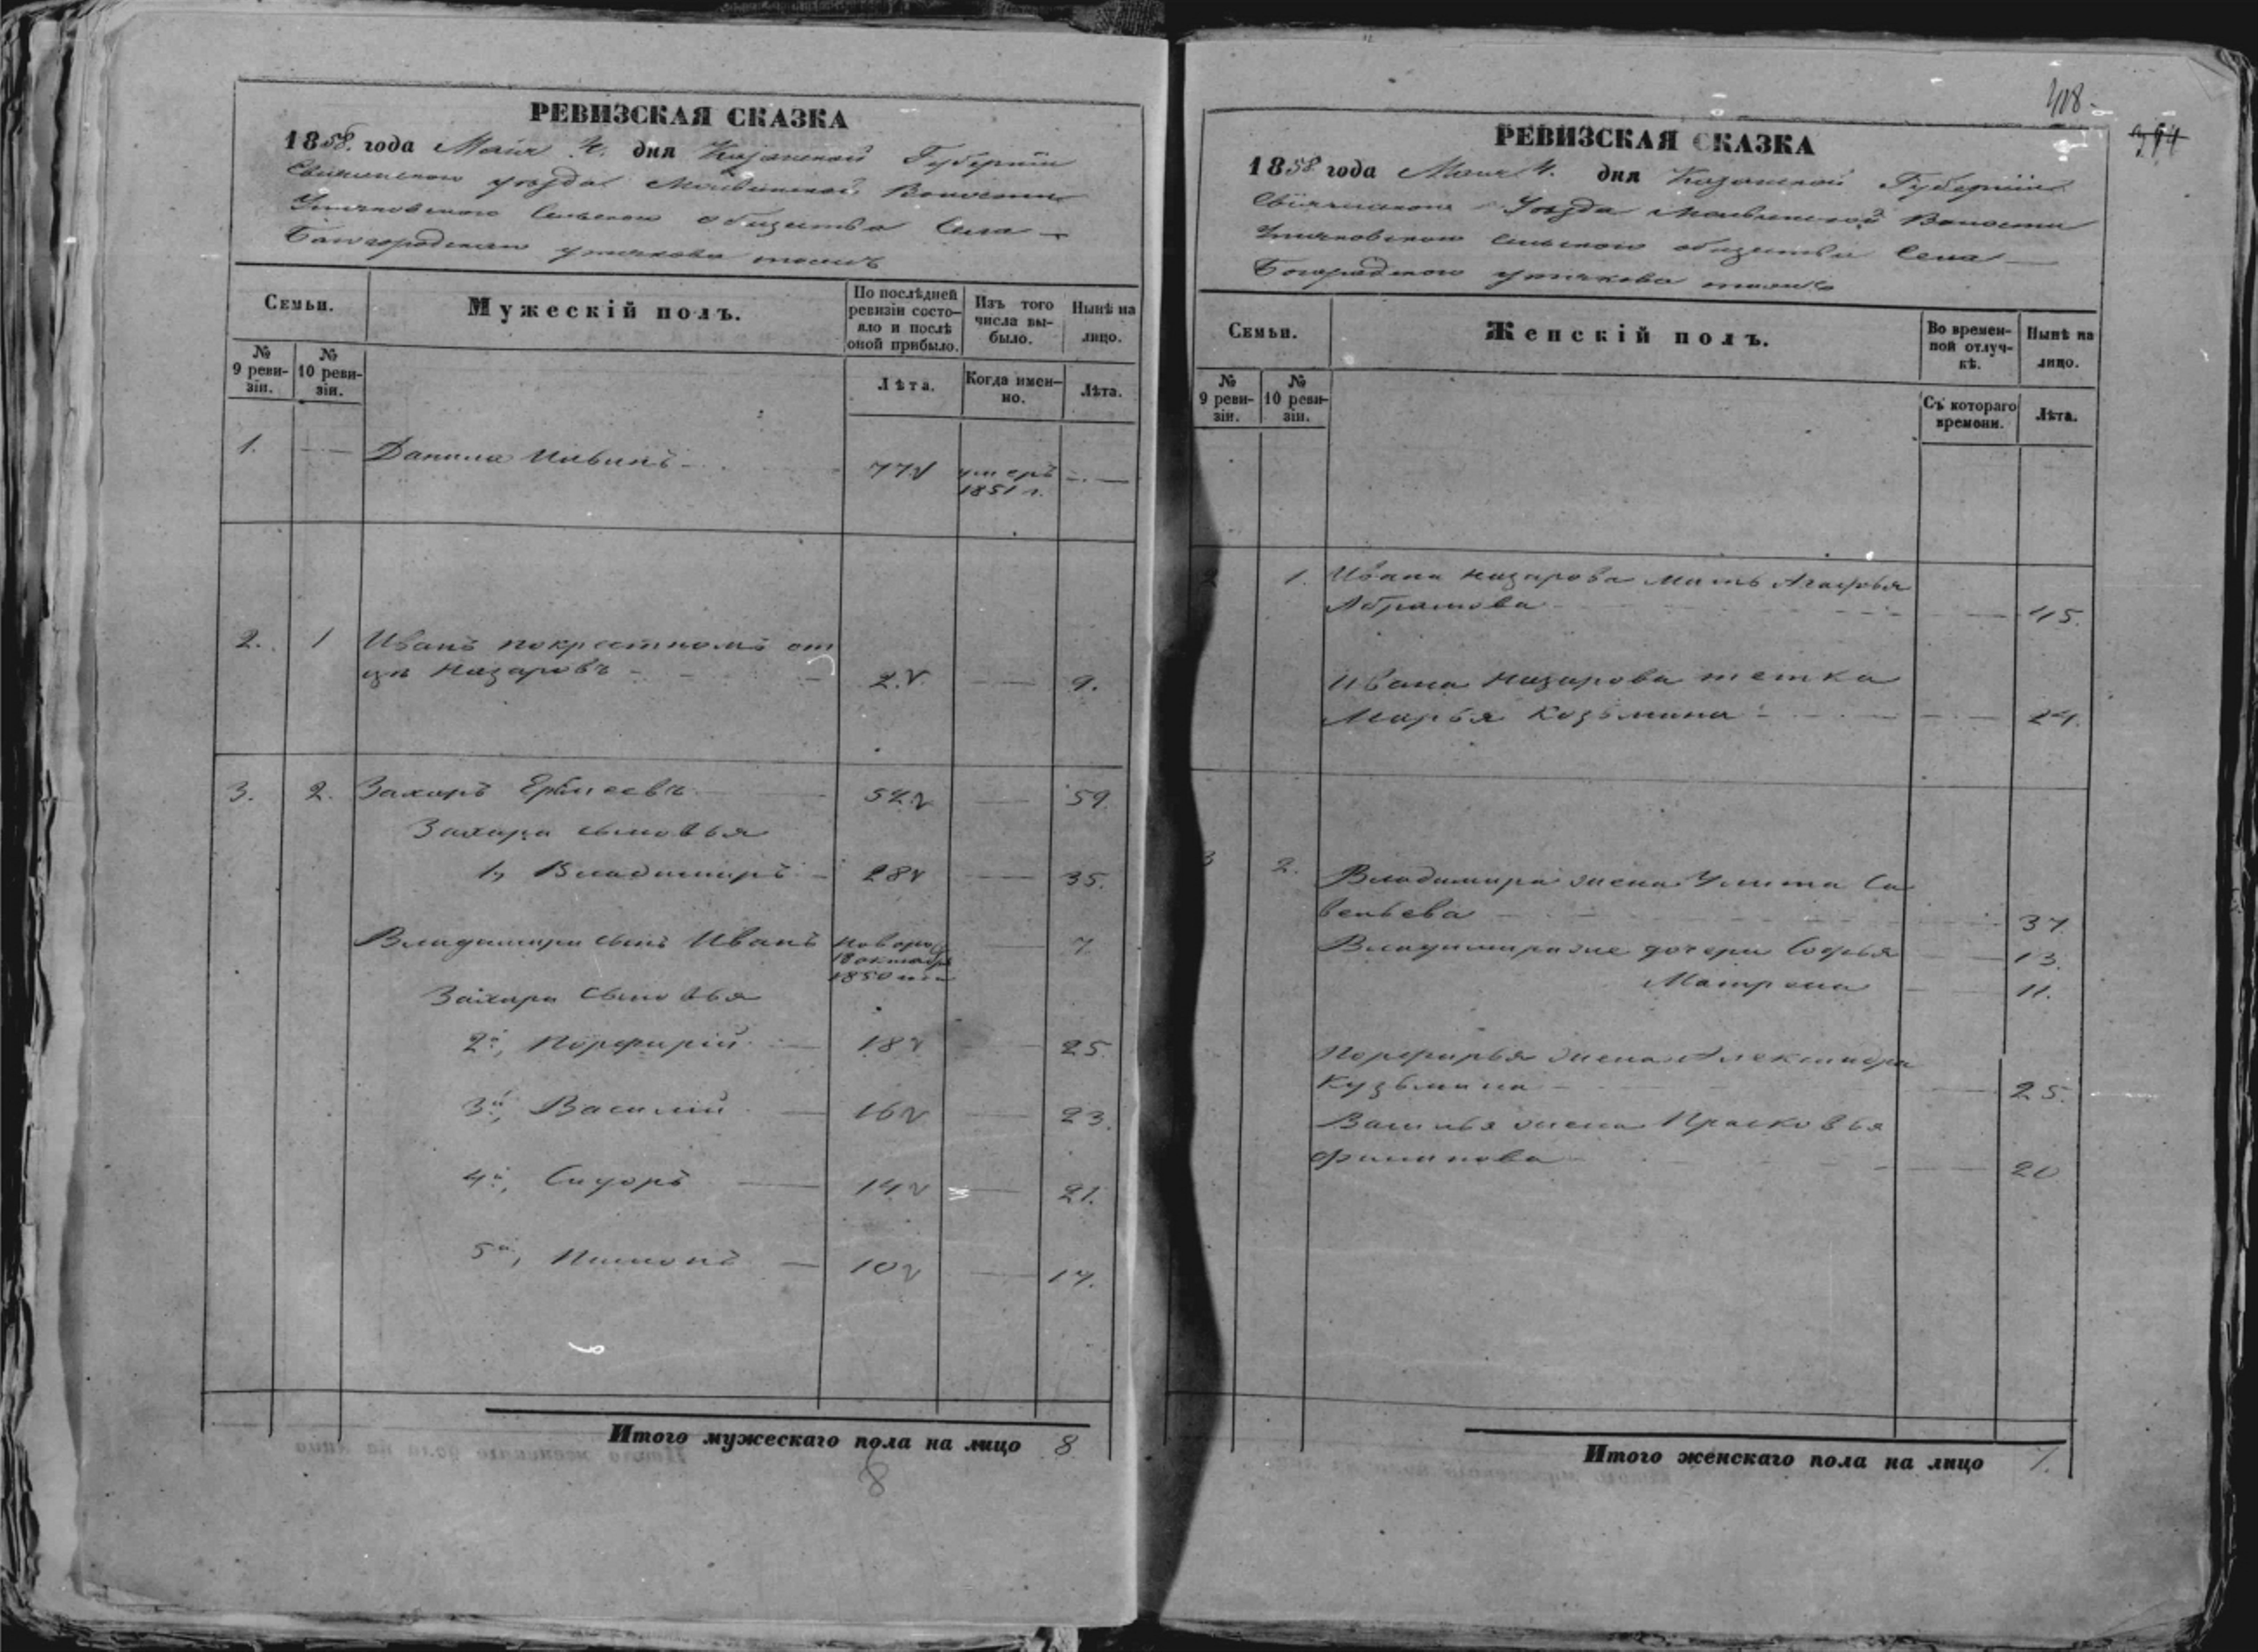 РЕВИЗСКАЯ СКАЗКА
1858. года Маія 4. дня Казанской Губерніи
Свіяжскаго уѣзда Волости
Сельскаго общества Села
Семьи.
Мужескій полъ.
По послѣдней ревизіи состояло и послѣ оной прибыло.
Изъ того числа выбыло.
Нынѣ на лицо.
№ 9 ревизіи.
№ 10 ревизіи.
Лѣта.
Когда именно.
Лѣта.
1. — Данила Ильинъ 77 умеръ —
1851 г.
2. 1 Иванъ покрестномъ от
цѣ Назаровъ 2. — 9.
3. 2. Захаръ Ермеевъ 52 — 59.
Захара сыновья
1, Владимиръ 28 — 35.
Владимира сынъ Иванъ новорож — 7
18 октября
1850 года
Захара сыновья
2й, Порфирій 18 — 25.
3й, Василій 16 — 23.
4й, Сидоръ 14 — 21.
5й, Пименъ 10 — 17.
Итого мужескаго пола на лицо 8
8
418.
РЕВИЗСКАЯ СКАЗКА
1858 года Маія 4. дня Казанской Губерніи
Свіяжскаго Уѣзда Волости
сельскаго общества Села
Семьи.
Женскій полъ.
Во временной отлучкѣ.
Нынѣ на лицо.
№ 9 ревизіи.
№ 10 ревизіи.
Съ котораго времени.
Лѣта.
2 1. Ивана Назарова мать Агафья
Абрамова — 45.
Ивана Назарова тетка
Марья Козьмина — 24.
3 2. Владимира жена Улита Са
вельева — 37.
Владимира же дочери Софья — 13.
Матрена — 11.
Порфирья жена Александра
Кузьмина — 25.
Василья жена Прасковья
Филипова — 20
Итого женскаго пола на лицо 7.